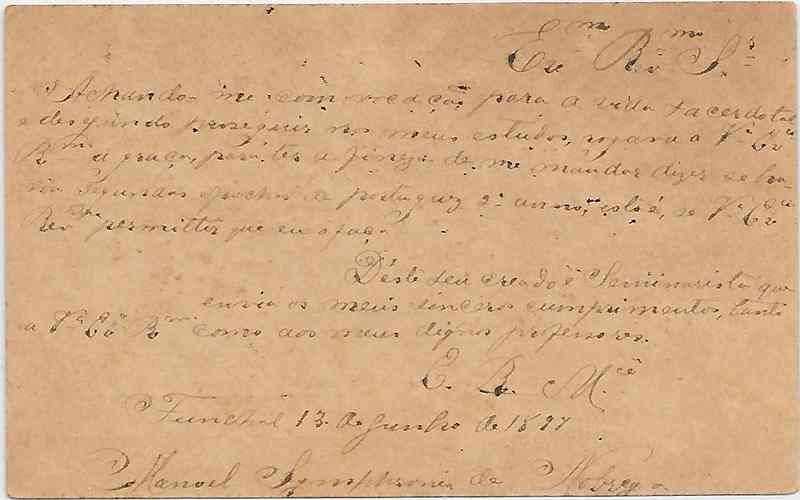 Exmo Rvmo Sr
Achando-me com vocação para a vida sacerdotal
e desejando proseguir nos meus estudos, rogava a Va Exa
Rma a graça, para ter a fineza de me mandar dizer se ha-
via segundas epochas de portuguez 2º anno, isto é, se Va Exa
Revma permitte que eu o faça.
Deste seu creado e Seminarista que
envia os meus sinceros cumprimentos, tanto
a Va Exa Rma como aos meus dignos professores.
E. R. Mcê
Funchal 13 de Junho de 1897
Manoel Symphronio de Nobrega